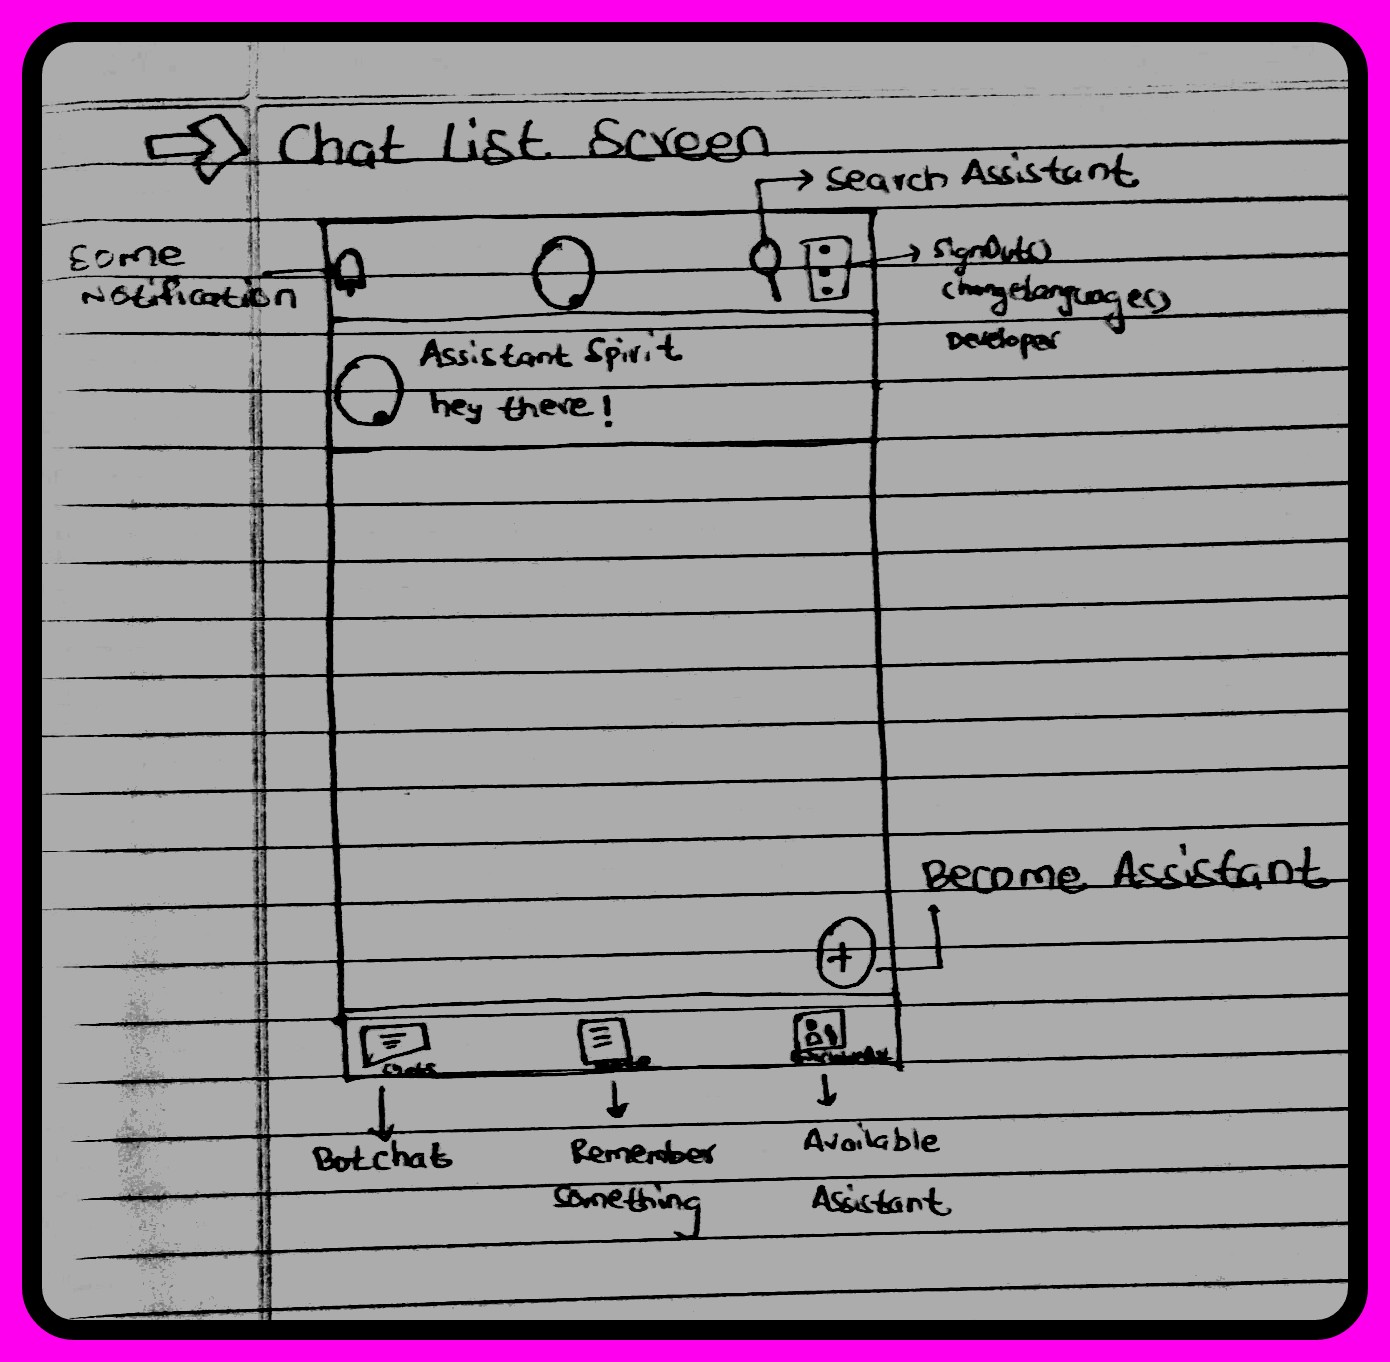 Chat List Screen
Search Assistant
Some
Notification
SignOut()
changeLanguage()
Developer
Assistant Spirit
hey there!
Become Assistant
+
Chats
Botchat
Remember
Something
Available
Assistant